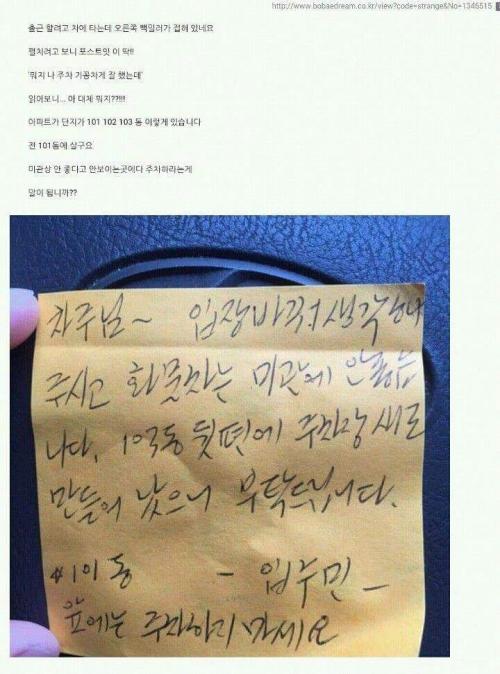 http://www.bobaedream.co.kr/view?code=strange&No=1346515
출근 할려고 차에 타는데 오른쪽 빽밀러가 접혀 있네요
펼치려고 보니 포스트잇 이 딱!!
'뭐지 나 주차 기꽁차게 잘 했는데'
읽어보니... 아 대체 뭐지??!!!
아파트가 단지가 101 102 103 동 이렇게 있습니다
전 101동에 살구요
미관상 안 좋다고 안보이는곳에다 주차하라는게
말이 됩니까??
차주님~ 입장바꿔 생각해
주시고 화물차는 미관에 안좋습
니다. 101동 뒷편에 주차장 새로
만들어 놨으니 부탁드립니다.
101동 - 입주민 -
앞에는 주차하지 마세요